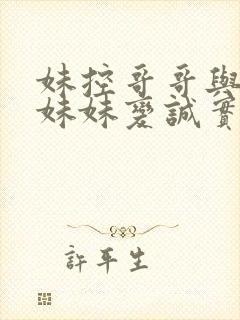 妹控哥哥與
妹妹愛誠實
許平生